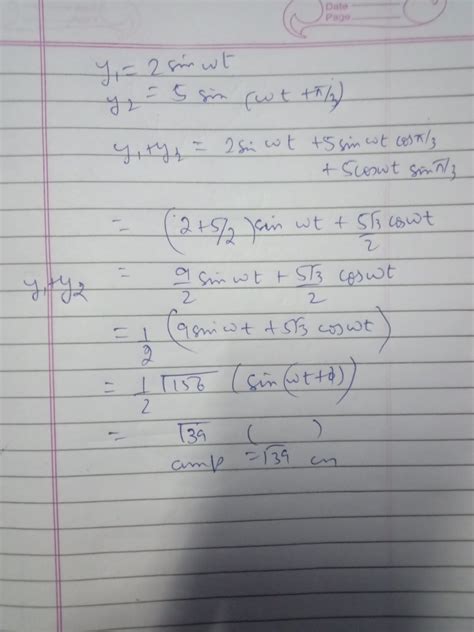 Date
Page
y₁ = 2 sin ωt
y₂ = 5 sin (ωt + π/3)
y₁+y₂ = 2 sin ωt + 5 sin ωt cos π/3
+ 5 cos ωt sin π/3
= (2+5/2) sin ωt + 5√3/2 cos ωt
y₁+y₂ = 9/2 sin ωt + 5√3/2 cos ωt
= 1/2 (9 sin ωt + 5√3 cos ωt)
= 1/2 √156 (sin (ωt+ϕ))
= √39 ( )
amp = √39 cm